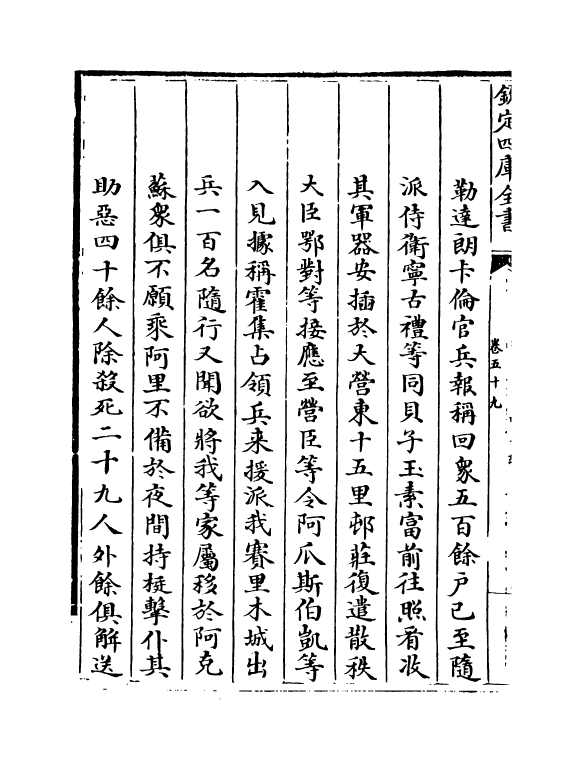 欽定四庫全書
卷五十九
勒達朗卡倫官兵報稱回衆五百餘户已至隨
派侍衛寧古禮等同貝子玉素富前往照看收
其軍器安插於大營東十五里邨莊復遣散秩
大臣鄂對等接應至營臣等令阿瓜斯伯凱等
入見據稱霍集占領兵来援派我賽里木城出
兵一百名隨行又聞欲將我等家屬移於阿克
蘇衆俱不願乘阿里不備於夜間持梃擊仆其
助惡四十餘人除殺死二十九人外餘俱解送